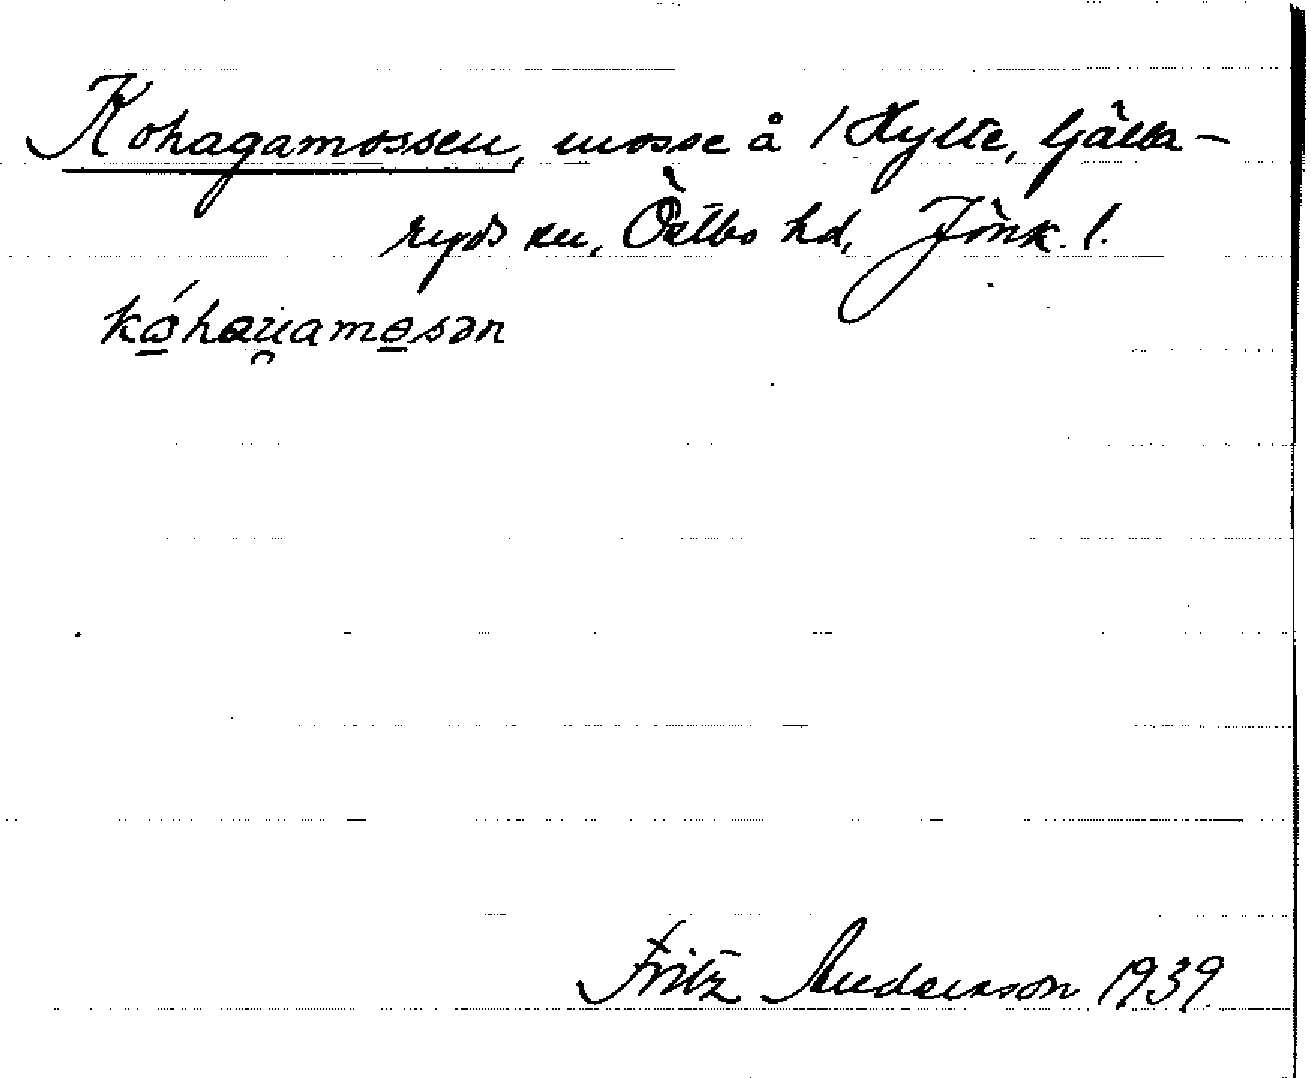 Kohagamossen, mosse å 1 Hylte, Gälla-
ryds sn, Östbo hd, Jönk. l.
kóhau̯amosən
Fritz Andersson 1939.